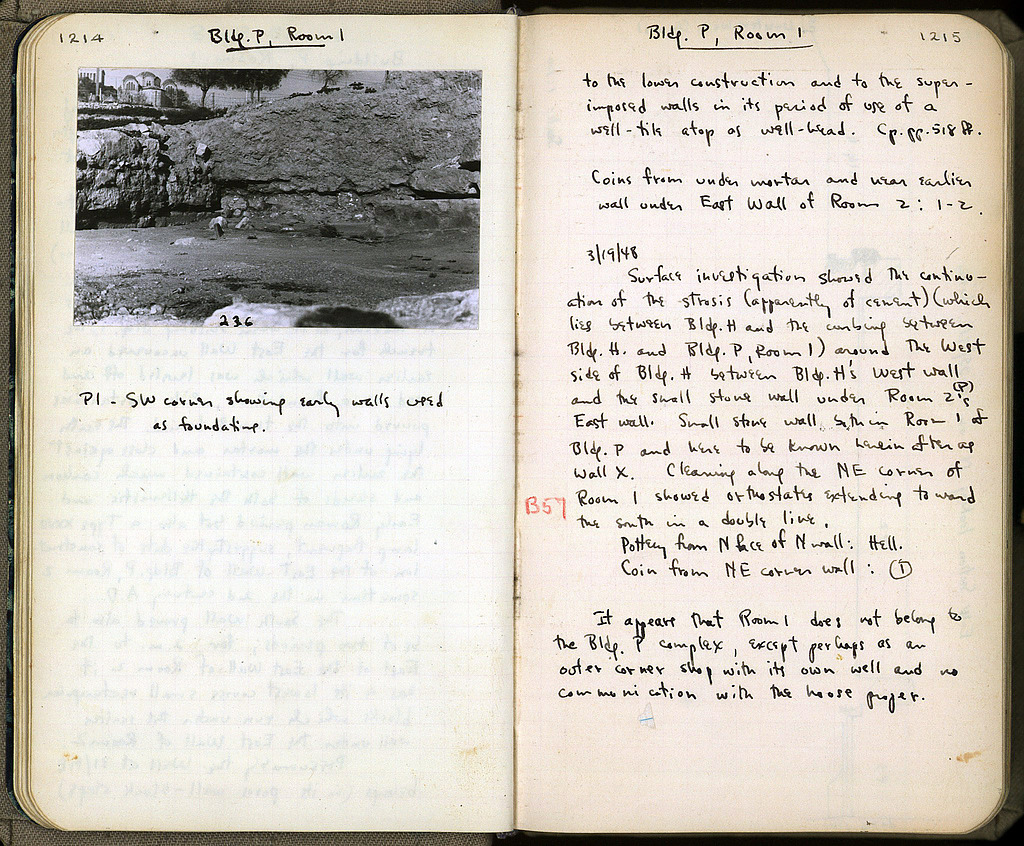 1214
Bldg. P, Room 1
236
P1 - SW corner, showing early walls used
as foundation.
Bldg. P, Room 1
1215
to the lower construction and to the super-
imposed walls in its period of use of a
well-tile atop as well-head. Cp. pp. 518 ff.
Coins from under mortar and near earlier
wall under East Wall of Room 2: 1-2.
3/19/48
Surface investigation showed the continu-
ation of the strosis (apparently of cement) (which
lies between Bldg. H and the curbing between
Bldg. H. and Bldg. P, Room 1) around the West
side of Bldg. H between Bldg. H's West wall
and the small stone wall under Room 2's (P)
East wall. Small stone wall, both in Room 1 of
Bldg. P and here to be known hereinafter as
wall X. Cleaning along the NE corner of
Room 1 showed orthostates extending toward
the south in a double line.
B57
Pottery from N face of N wall: Hell.
Coin from NE corner wall: 1
It appears that Room 1 does not belong to
the Bldg. P complex, except perhaps as an
outer corner shop with its own well and no
communication with the house proper.